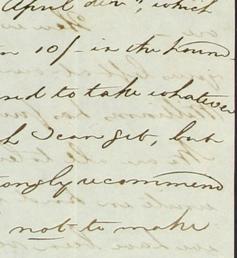 April div^d, which
n 10/- in the pound
ed to take whatever
h I can get, but
ongly recommend
not to make